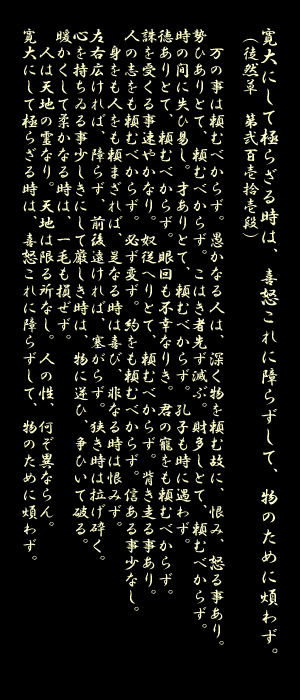 寛大にして極らざる時は、喜怒これに障らずして、物のために煩わず。
(徒然草　第弐百壱拾壱段)
万の事は頼むべからず。愚かなる人は、深く物を頼む故に、恨み、怒る事あり。
勢ひありとて、頼むべからず。こはき者先ず滅ぶ。財多しとて、頼むべからず。
時の間に失ひ易し。才ありとて、頼むべからず。孔子も時に遇わず。
徳ありとて、頼むべからず。顔回も不幸なりき。君の寵をも頼むべからず。
誅を受くる事速やかなり。奴従へりとて、頼むべからず。背き走る事あり。
人の志をも頼むべからず。必ず変ず。約をも頼むべからず。信ある事少なし。
身をも人をも頼まざれば、是なる時は喜び、非なる時は恨みず。
左右広ければ、障らず、前後遠ければ、塞がらず。狭き時は拉げ砕く。
心を持ちゐる事少しきにして厳しき時は、物に逆ひ、争ひいて破る。
暖かくして柔かなる時は、一毛も損ぜず。
人は天地の霊なり。天地は限る所なし。人の性、何ぞ異ならん。
寛大にして極らざる時は、喜怒これに障らずして、物のために煩わず。